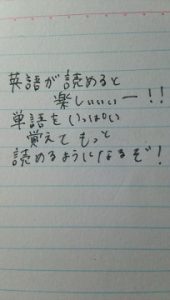 英語が読めると
楽しぃぃぃー!!
単語をいっぱい
覚えてもっと
読めるようになるぞ!